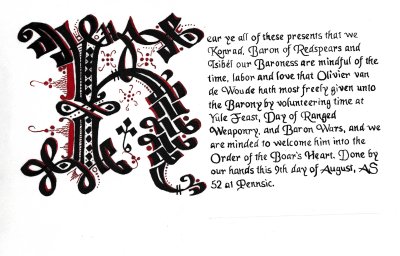 Hear ye all of these presents that we
Konrad, Baron of Redspears and
Isibél our Baroness are mindful of the
time, labor and love that Olivier van
de Woude hath most freely given unto
the Barony by volunteering time at
Yule Feast, Day of Ranged
Weaponry, and Baron Wars, and we
are minded to welcome him into the
Order of the Boar's Heart. Done by
our hands this 9th day of August, AS
52 at Pennsic.